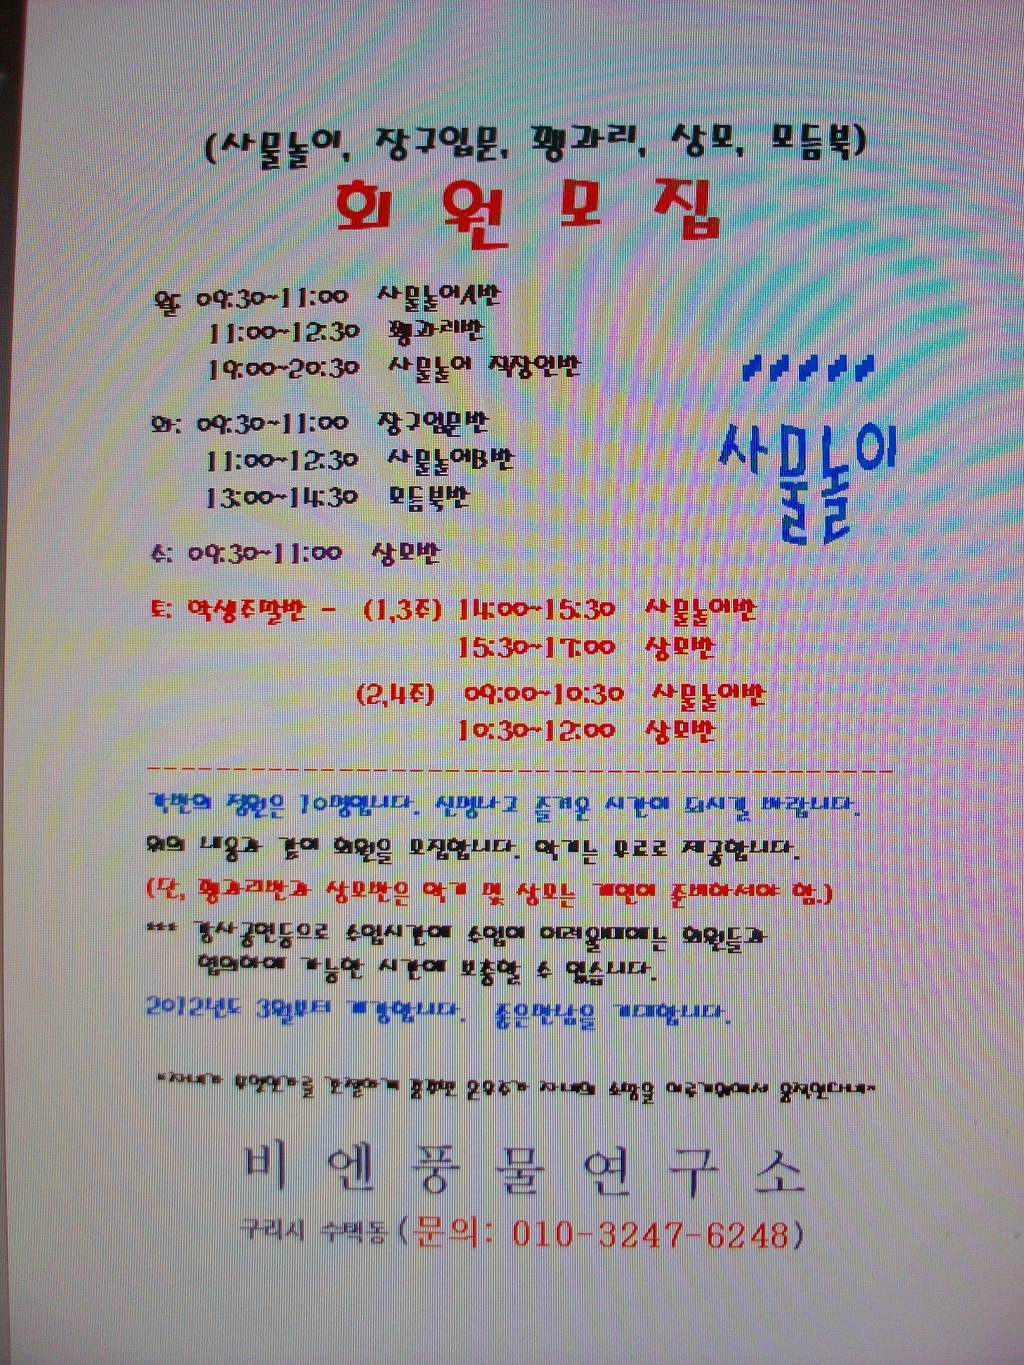 (사물놀이, 장구입문, 꽹과리, 상모, 모듬북)
회 원 모 집
월: 09:30~11:00 사물놀이A반
11:00~12:30 꽹과리반
19:00~20:30 사물놀이 직장인반
화: 09:30~11:00 장구입문반
11:00~12:30 사물놀이B반
13:00~14:30 모듬북반
사물놀이
수: 09:30~11:00 상모반
토: 학생주말반 - (1,3주) 14:00~15:30 사물놀이반
15:30~17:00 상모반
(2,4주) 09:00~10:30 사물놀이반
10:30~12:00 상모반
정원은 10명입니다.
회원을 모집합니다. 악기는 무료로 제공합니다.
(단, 꽹과리반과 상모반은 악기 및 상모는 개인이 준비하셔야 함.)
*** 수업시간에 수업이 회원들과
가능한 시간에 보충할 수 있습니다.
2012년도 3월부터 좋은만남을 기대합니다.
비 엔 풍 물 연 구 소
구리시 수택동 (문의: 010-3247-6248)